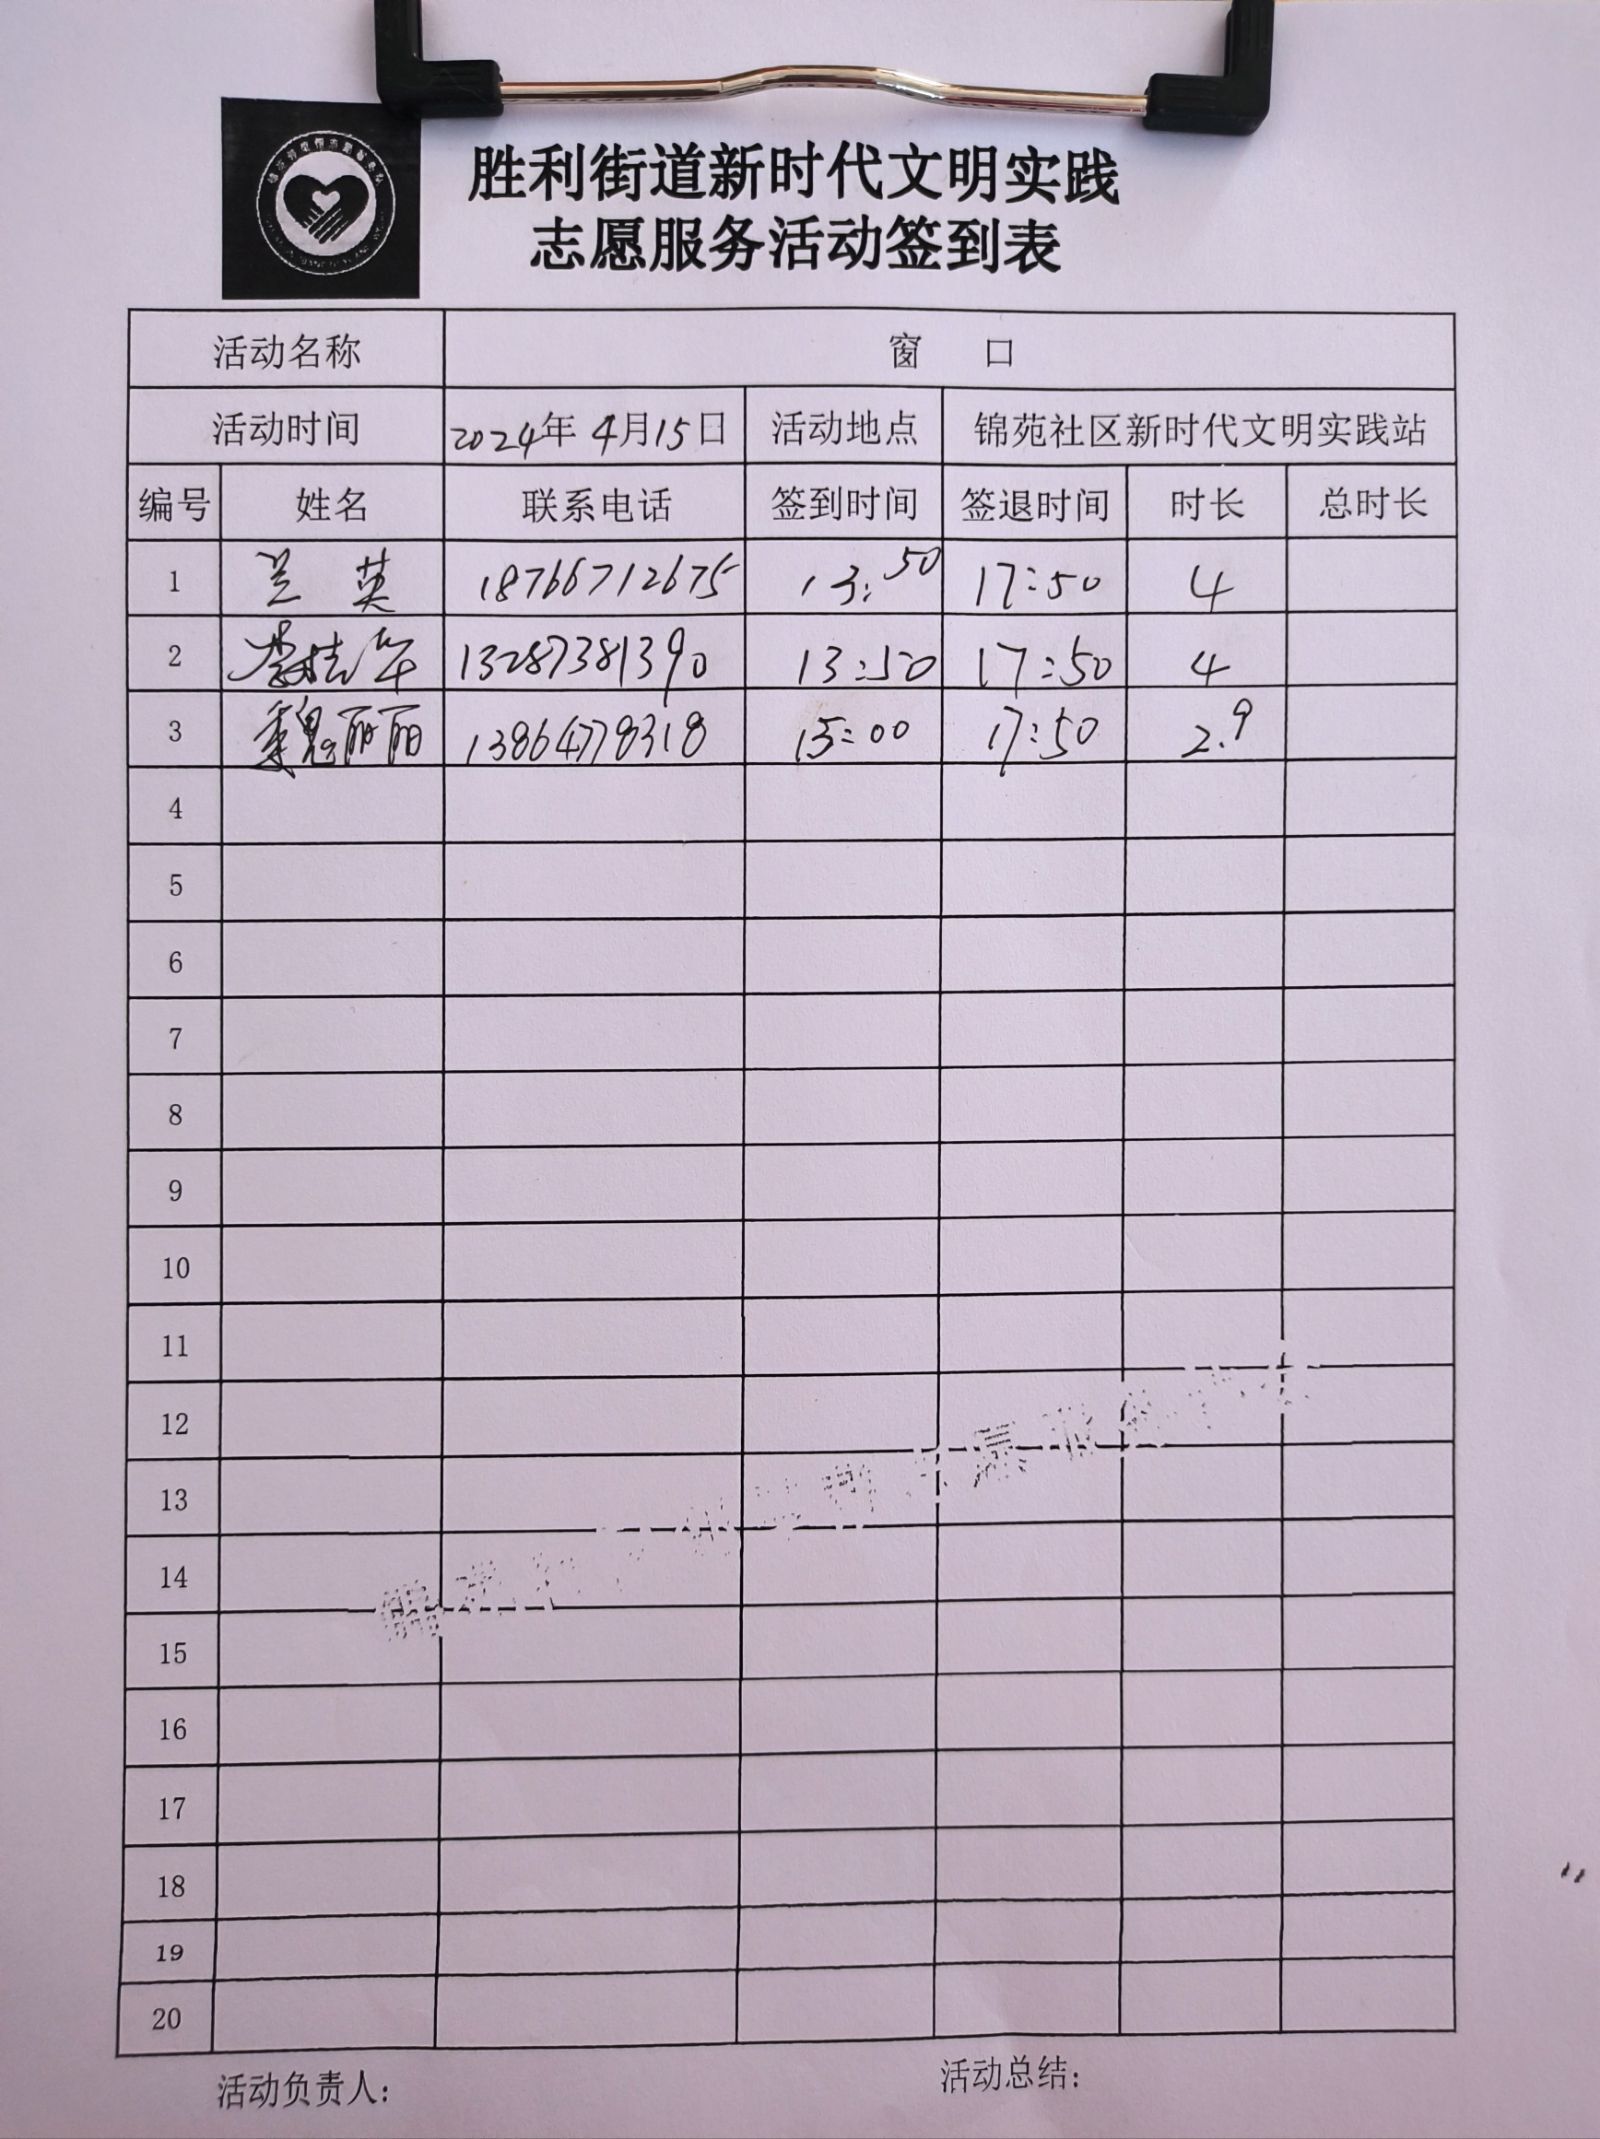 胜利街道新时代文明实践
志愿服务活动签到表
活动名称 窗 口
活动时间 2024年 4月15日 活动地点 锦苑社区新时代文明实践站
编号 姓名 联系电话 签到时间 签退时间 时长 总时长
1 兰 英 18766712675 13:50 17:50 4
2 李桂华 13287381390 13:50 17:50 4
3 魏丽丽 13864778318 15:00 17:50 2.9
4
5
6
7
8
9
10
11
12
13
14
15
16
17
18
19
20
活动负责人: 活动总结: